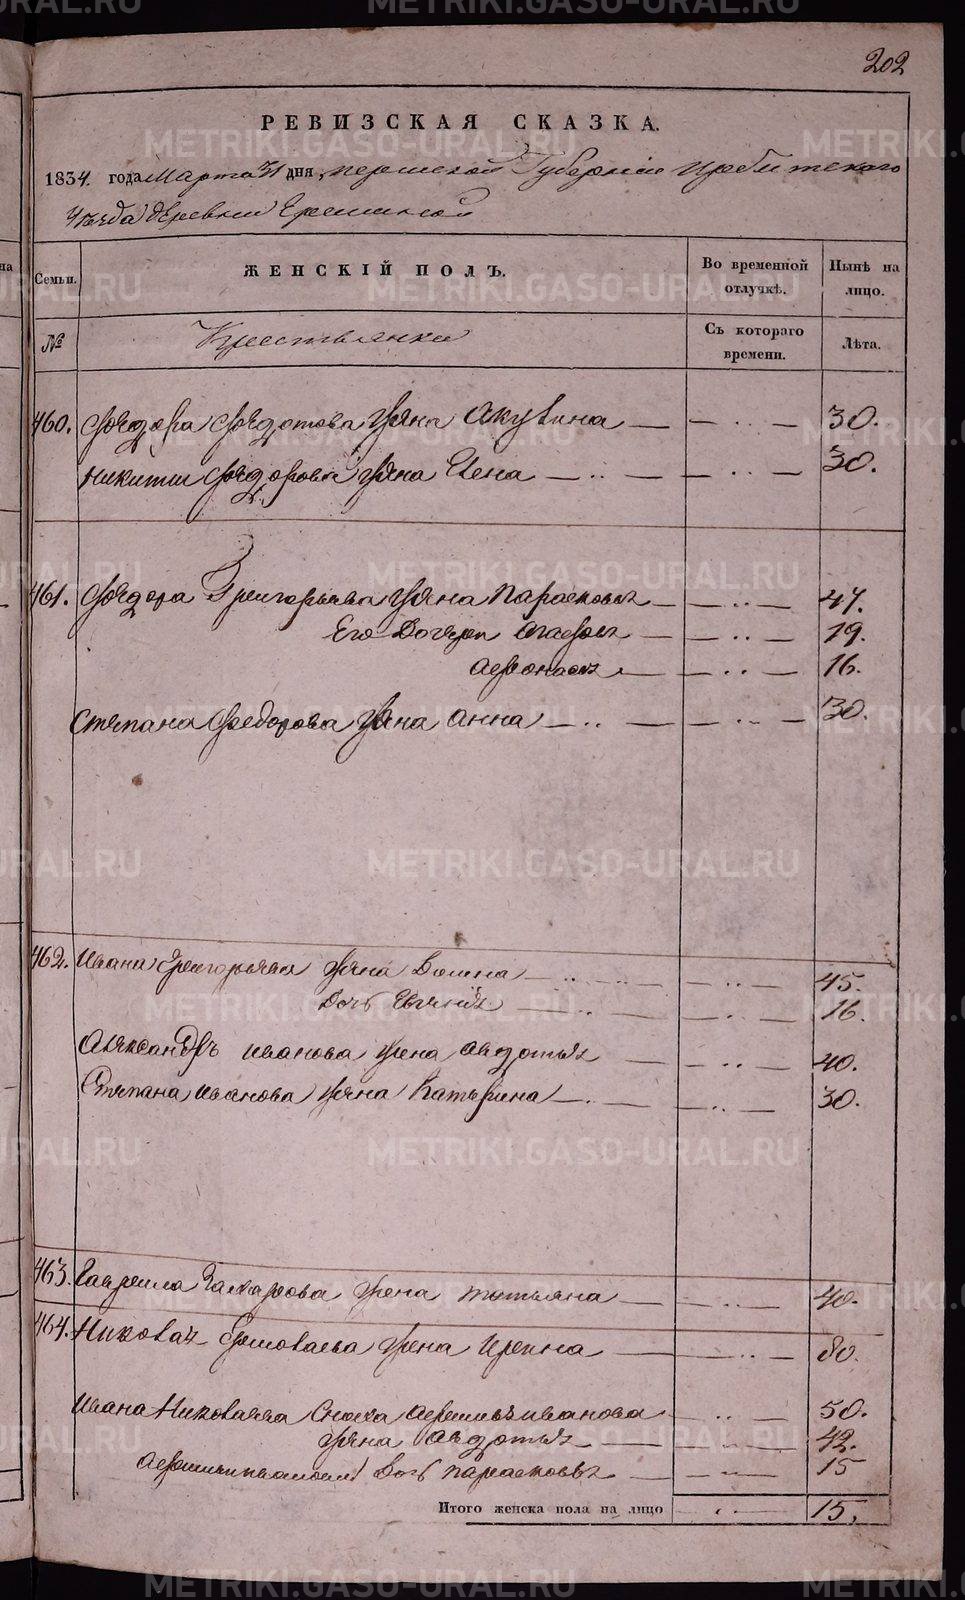 202
РЕВИЗСКАЯ СКАЗКА.
1834. года Марта 31 дня, Пермской Губернии Ирбитскаго
Уезда деревни
Семьи. ЖЕНСКІЙ ПОЛЪ. Во временной отлучкѣ. Нынѣ на лицо.
№ Крестьянки Съ котораго времени. Лѣта.
460. Феодора Федотова жена Акулина — — .. — 30.
Никиты Федорова жена Елена — .. — — .. — 30.
461. Феодора Григорьева жена Парасковья — — .. — 47.
Его Дочери Агафья — — .. — 19.
Афонасья — — .. — 16.
Степана Федорова жена Анна — .. — — .. — 30.
462. Ивана Григорьева жена — .. — .. — 45.
Дочь — — .. — 16.
Александръ Иванова жена Авдотья — — .. — 40.
Степана Иванова жена Катерина — . — — .. — 30.
463. Гаврила жена Татьяна — — .. — 40.
464. жена Ирина — — .. — 80.
Ивана Николаева Сноха Иванова — .. — 50.
жена Авдотья — — .. — 42.
Дочь Парасковья — — .. — 15
Итого женска пола на лицо 15.
METRIKI.GASO-URAL.RU